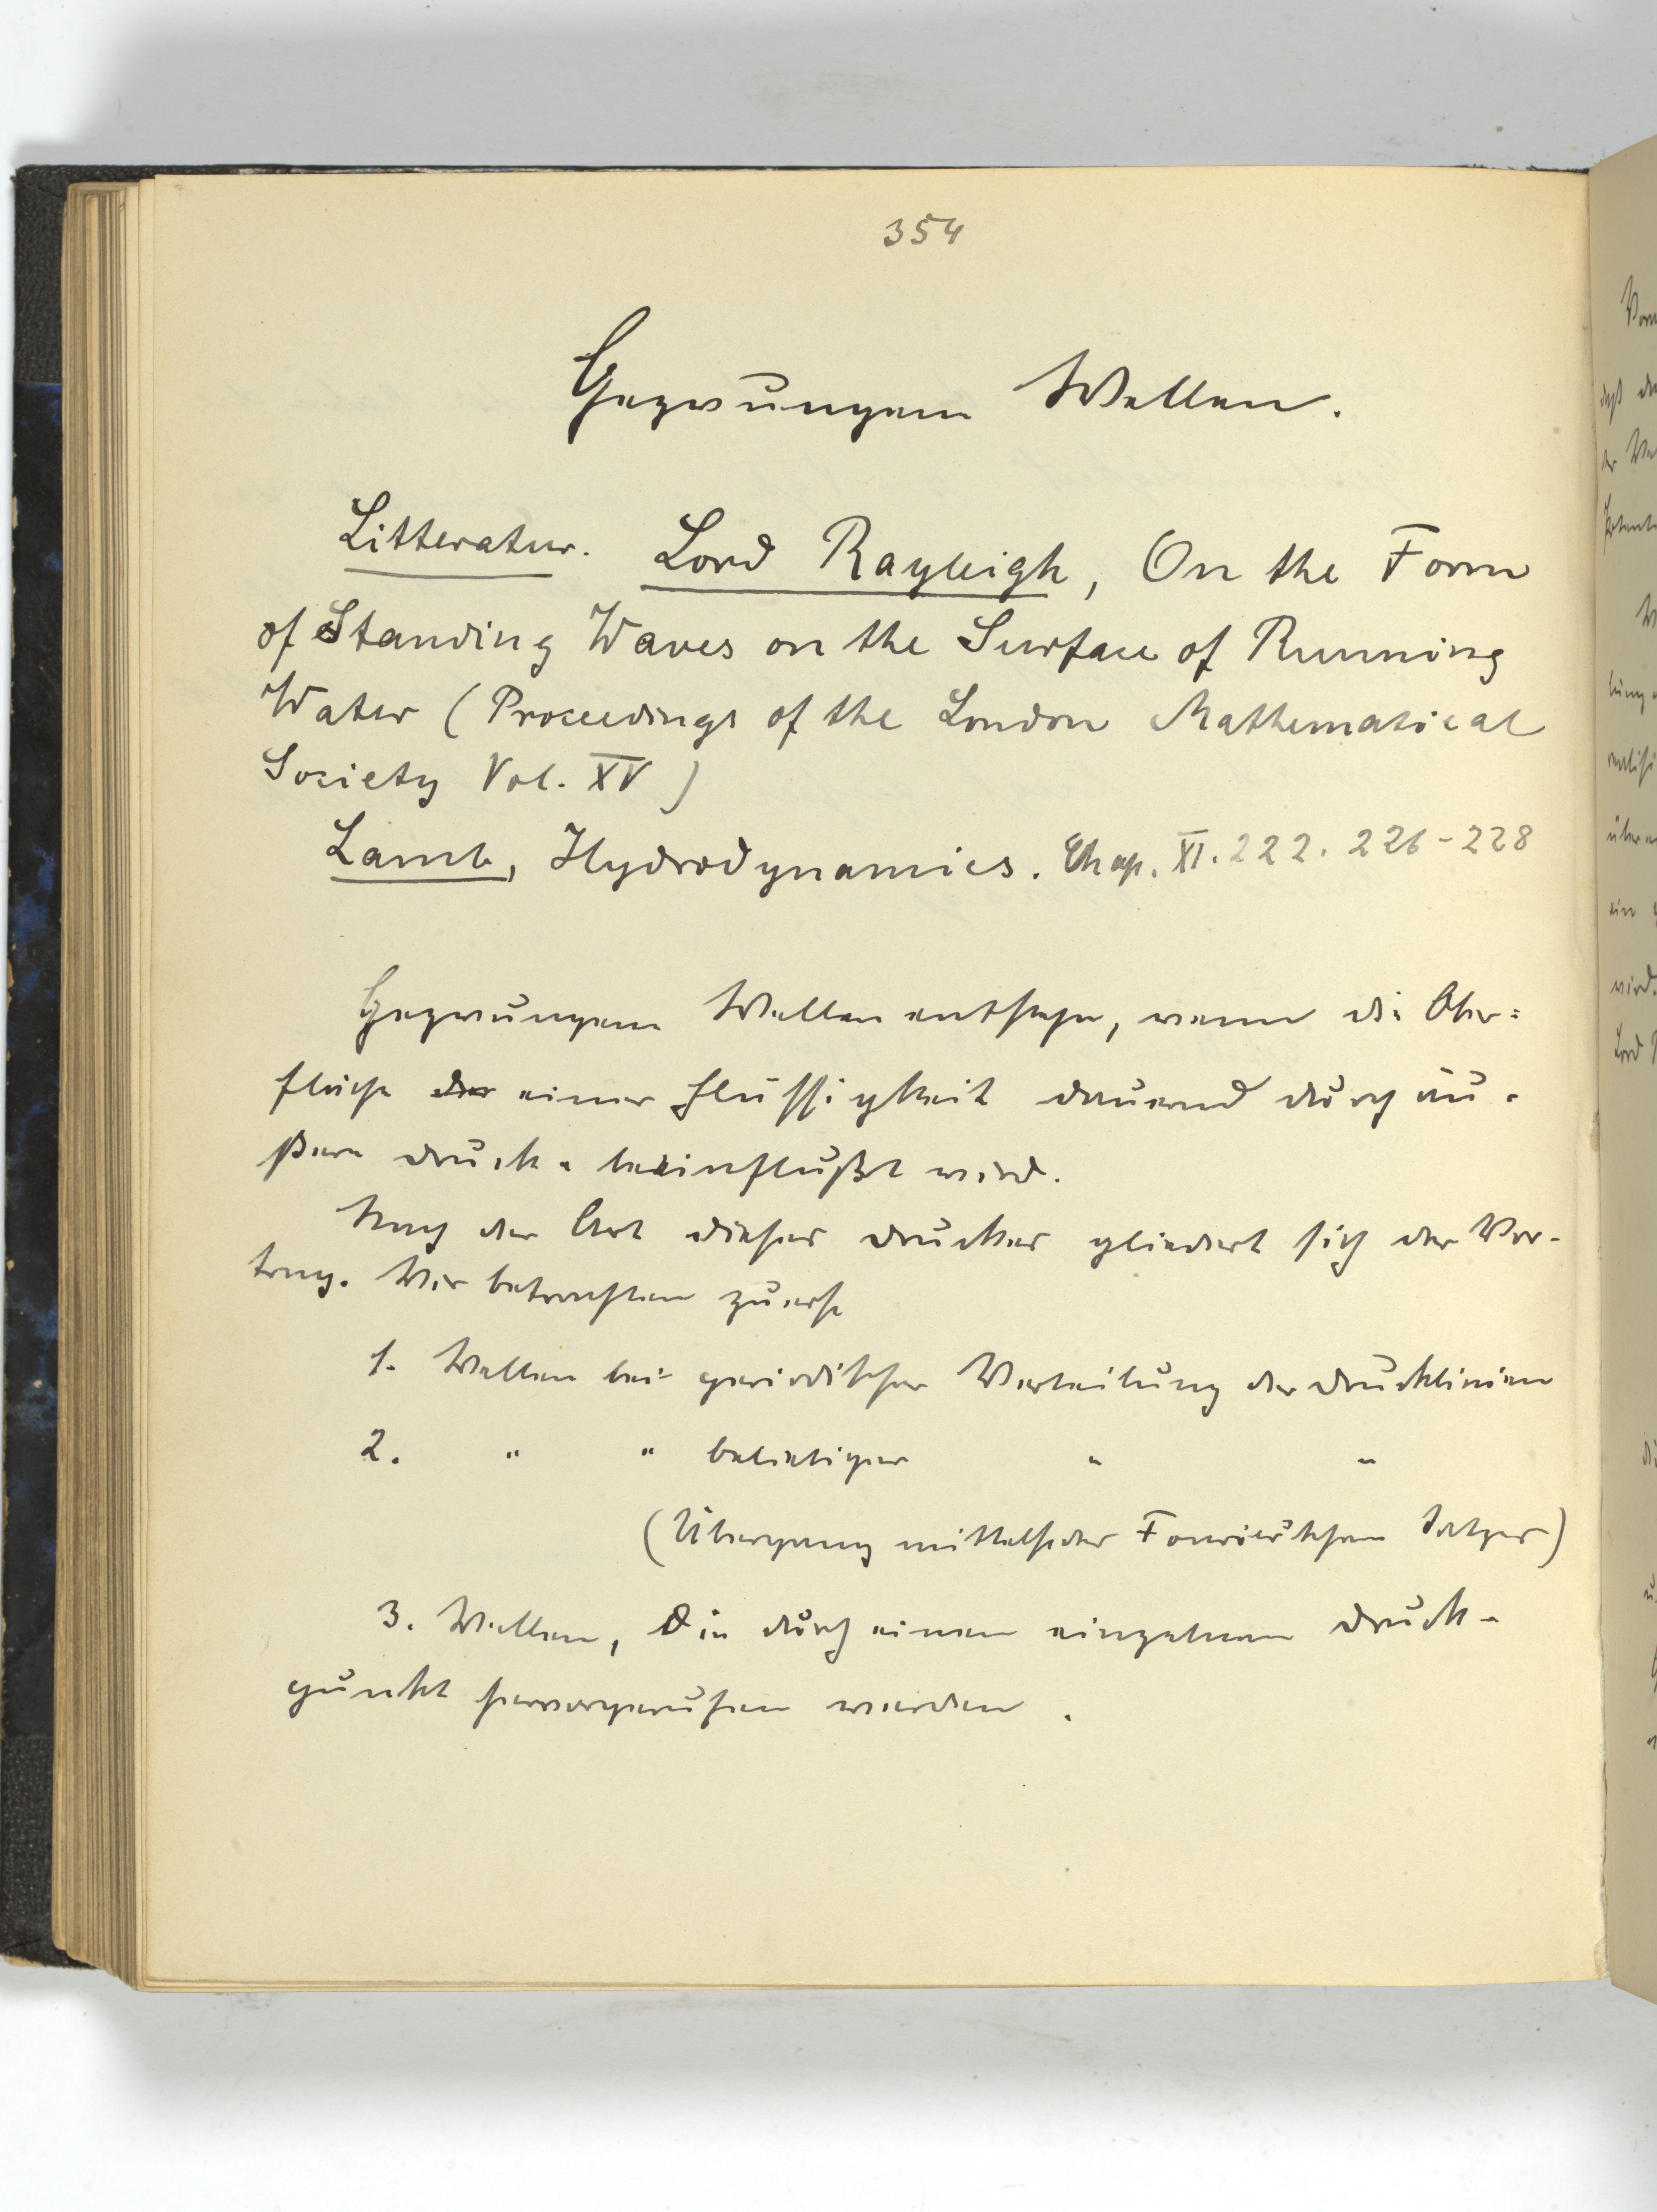 354
Gezwungene Wellen.
Litteratur. Lord Rayleigh, On the Form
of Standing Waves on the Surface of Running
Water (Proceedings of the London Mathematical
Society Vol. XV)
Lamb, Hydrodynamics. Chap. XI. 222. 226-228
Gezwungene Wellen entstehen, wenn die Ober=
fläche einer Flüssigkeit dauernd durch äu-
ßere Drucke beeinflußt wird.
Nach der Art dieses Druckes gliedert sich der Vor-
trag. Wir betrachten zuerst
1. Wellen bei periodischer Verteilung der Drucklinien
2. " " beliebiger " "
(Übergang mittelst des Fourier'schen Satzes)
3. Wellen, die durch einen einzelnen Druck-
punkt hervorgerufen werden.
Lord
wird.
ein